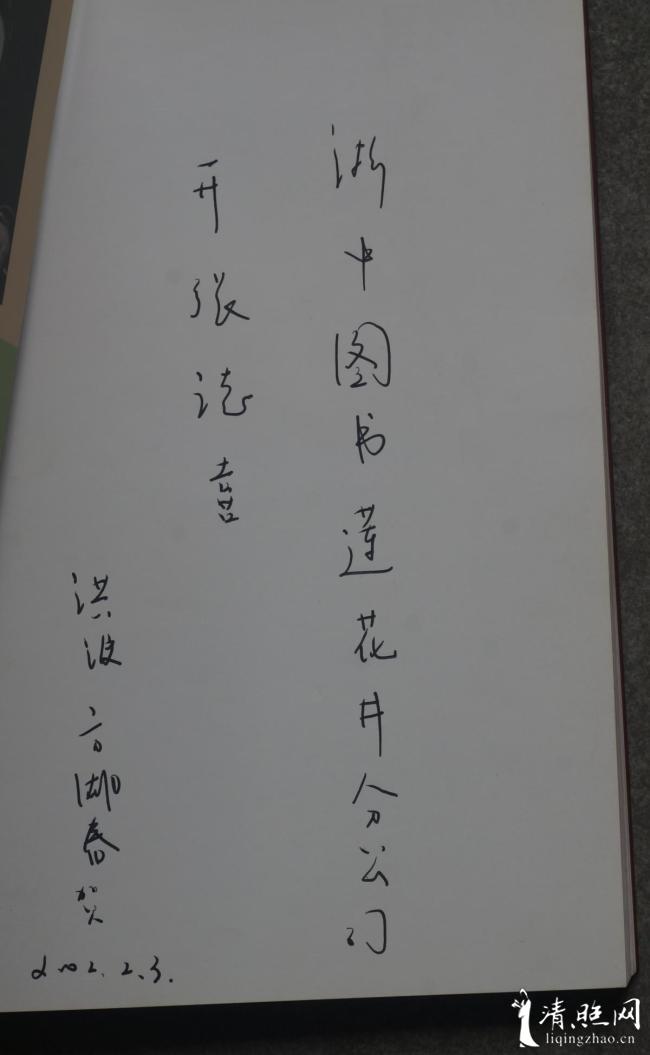 浙中图书莲花井分公司
开张志喜
洪波 言湖春贺
2002.2.3.
清照网
liqingzhao.cn